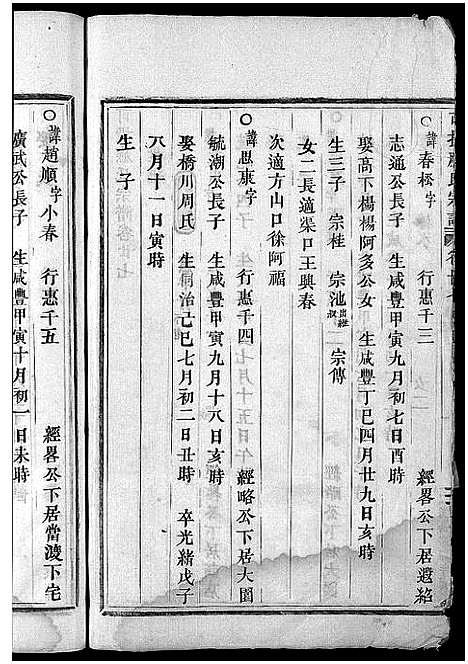 諱春松字 行惠千三 經畧公下居遐紹
志通公長子 生咸豐甲寅九月初七日酉時
娶高下楊楊阿多公女 生咸豐丁巳四月廿九日亥時
生三子 宗桂 宗池出繼叔 宗傳
女二長適渠口王興春
次適方山口徐阿福
諱思康字 行惠千四 經略公下居大園
毓潮公長子 生咸豐甲寅九月十八日亥時
娶橋川周氏 生同治己巳七月初二日丑時 卒光緒戊子
八月十一日寅時
生子
諱趙順字小春 行惠千五 經畧公下居當淩下宅
廣武公長子 生咸豐甲寅十月初一日未時